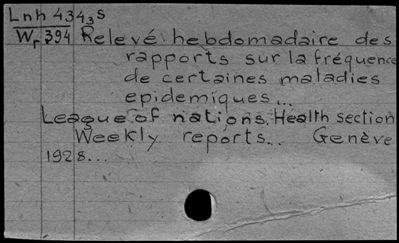 Lnh 4343s
Wr 394 Relevé hebdomadaire des
rapports sur la fréquence
de certaines maladies
epidemiques...
League of nations. Health section
Weekly reports... Genève
1928...